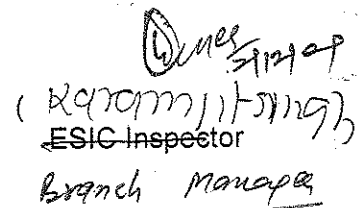 (Karamjit Singh)
ESIC Inspector
Branch Manager